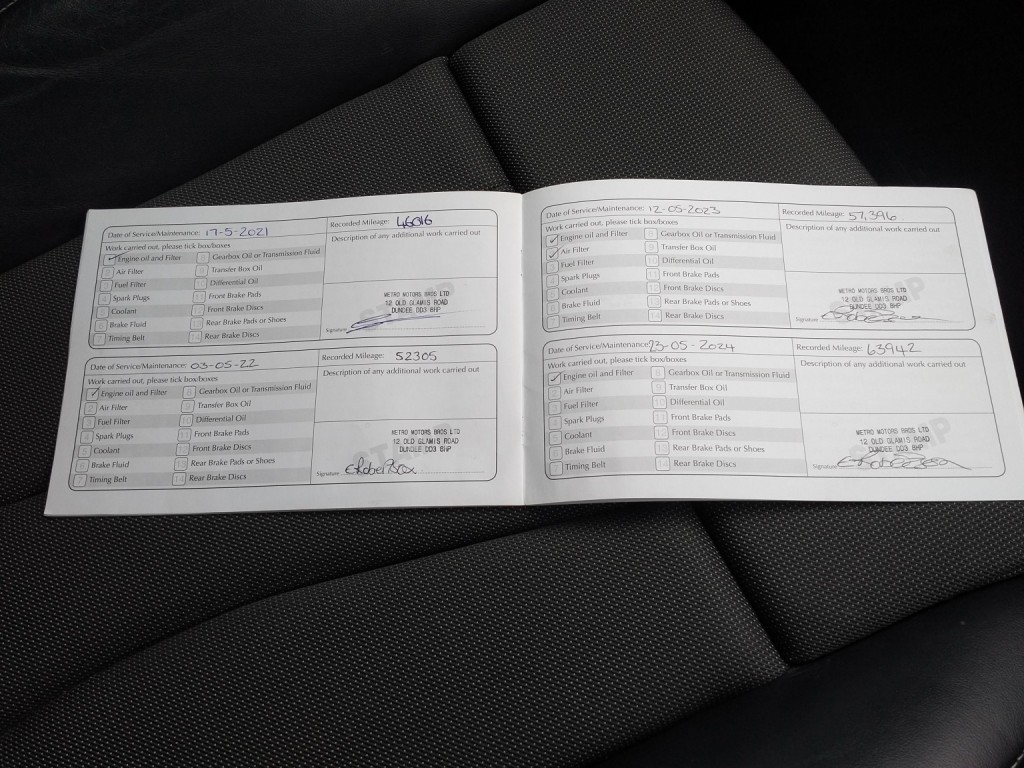 Date of Service/Maintenance: 17-5-2021
Recorded Mileage: 46046
Work carried out, please tick box/boxes
Description of any additional work carried out
1 Engine oil and Filter
8 Gearbox Oil or Transmission Fluid
2 Air Filter
9 Transfer Box Oil
3 Fuel Filter
10 Differential Oil
4 Spark Plugs
11 Front Brake Pads
5 Coolant
12 Front Brake Discs
6 Brake Fluid
13 Rear Brake Pads or Shoes
7 Timing Belt
14 Rear Brake Discs
STAMP
METRO MOTORS BROS LTD
12 OLD GLAMIS ROAD
DUNDEE DD3 8HP
Signature
Date of Service/Maintenance: 03-05-22
Recorded Mileage: 52305
Work carried out, please tick box/boxes
Description of any additional work carried out
1 Engine oil and Filter
8 Gearbox Oil or Transmission Fluid
2 Air Filter
9 Transfer Box Oil
3 Fuel Filter
10 Differential Oil
4 Spark Plugs
11 Front Brake Pads
5 Coolant
12 Front Brake Discs
6 Brake Fluid
13 Rear Brake Pads or Shoes
7 Timing Belt
14 Rear Brake Discs
STAMP
METRO MOTORS BROS LTD
12 OLD GLAMIS ROAD
DUNDEE DD3 8HP
Signature
Date of Service/Maintenance: 12-05-2023
Recorded Mileage: 57,396
Work carried out, please tick box/boxes
Description of any additional work carried out
1 Engine oil and Filter
8 Gearbox Oil or Transmission Fluid
2 Air Filter
9 Transfer Box Oil
3 Fuel Filter
10 Differential Oil
4 Spark Plugs
11 Front Brake Pads
5 Coolant
12 Front Brake Discs
6 Brake Fluid
13 Rear Brake Pads or Shoes
7 Timing Belt
14 Rear Brake Discs
STAMP
METRO MOTORS BROS LTD
12 OLD GLAMIS ROAD
DUNDEE DD3 8HP
Signature
Date of Service/Maintenance: 23-05-2024
Recorded Mileage: 63942
Work carried out, please tick box/boxes
Description of any additional work carried out
1 Engine oil and Filter
8 Gearbox Oil or Transmission Fluid
2 Air Filter
9 Transfer Box Oil
3 Fuel Filter
10 Differential Oil
4 Spark Plugs
11 Front Brake Pads
5 Coolant
12 Front Brake Discs
6 Brake Fluid
13 Rear Brake Pads or Shoes
7 Timing Belt
14 Rear Brake Discs
STAMP
METRO MOTORS BROS LTD
12 OLD GLAMIS ROAD
DUNDEE DD3 8HP
Signature